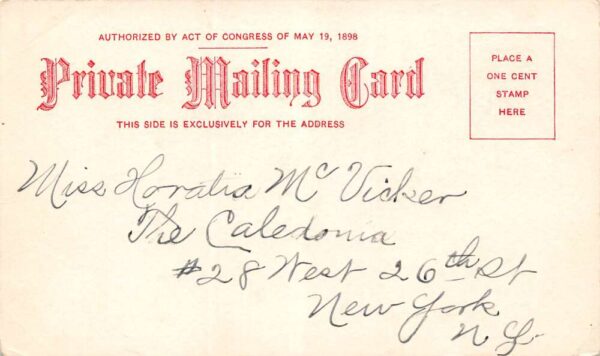 AUTHORIZED BY ACT OF CONGRESS OF MAY 19, 1898
Private Mailing Card
THIS SIDE IS EXCLUSIVELY FOR THE ADDRESS
PLACE A
ONE CENT
STAMP
HERE
Miss Horatia Mc Vicker
The Caledonia
#28 West 26th St
New York
N Y